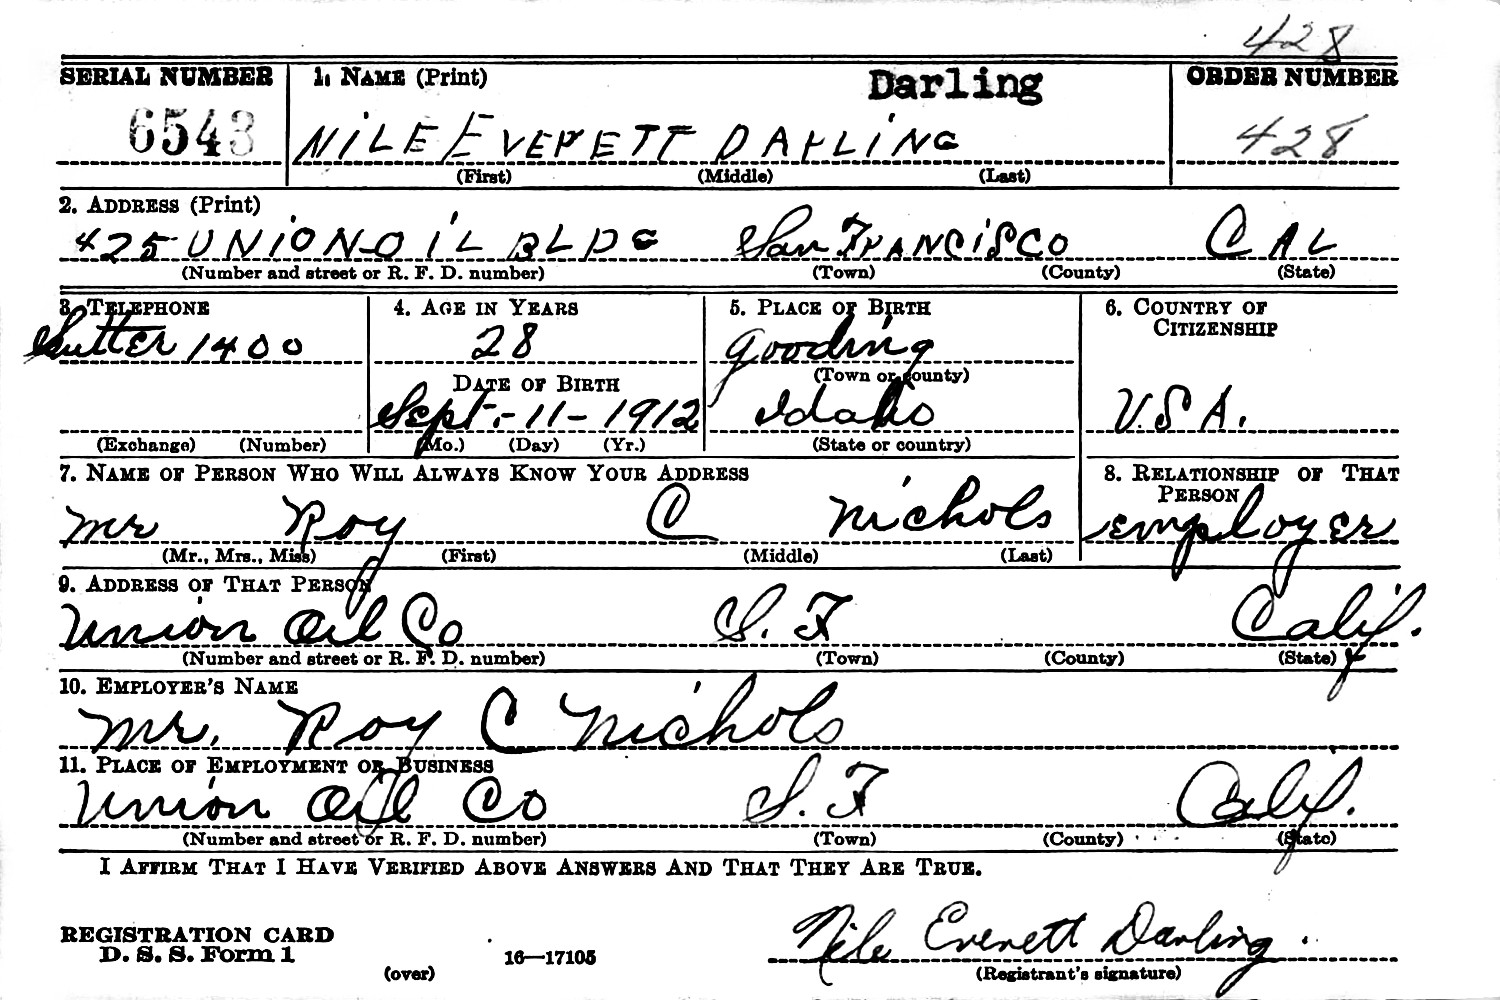 428
SERIAL NUMBER 1. NAME (Print) Darling ORDER NUMBER
6543 NILE EVERETT DARLING 428
(First) (Middle) (Last)
2. ADDRESS (Print)
425 UNION OIL BLDG San FRANCISCO CAL
(Number and street or R. F. D. number) (Town) (County) (State)
3. TELEPHONE 4. AGE IN YEARS 5. PLACE OF BIRTH 6. COUNTRY OF
CITIZENSHIP
Sutter 1400 28 Gooding
(Town or county)
DATE OF BIRTH
Sept.-11-1912 Idaho U.S.A.
(Exchange) (Number) (Mo.) (Day) (Yr.) (State or country)
7. NAME OF PERSON WHO WILL ALWAYS KNOW YOUR ADDRESS 8. RELATIONSHIP OF THAT
PERSON
Mr Roy C Nichols employer
(Mr., Mrs., Miss) (First) (Middle) (Last)
9. ADDRESS OF THAT PERSON
Union Oil Co S. F Calif.
(Number and street or R. F. D. number) (Town) (County) (State)
10. EMPLOYER'S NAME
Mr. Roy C Nichols
11. PLACE OF EMPLOYMENT OR BUSINESS
Union Oil Co S. F Calif.
(Number and street or R. F. D. number) (Town) (County) (State)
I AFFIRM THAT I HAVE VERIFIED ABOVE ANSWERS AND THAT THEY ARE TRUE.
REGISTRATION CARD
D. S. S. Form 1 16—17105 Nile Everett Darling.
(over) (Registrant's signature)